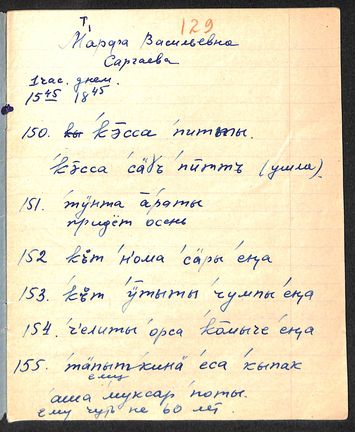 Т₁ 129
Марфа Васильевна
Саргаева
1 час. днем.
15⁴⁵ 18⁴⁵
150. ʹкэ̄сса ʹпитыты.
ʹкэ̄сса ʹса̄ɣъ ʹпӣттъ (ушла)
151. ʹтӱнта ʹа̄раты
придёт осень
152 ʹкъ̊т ʹн'ома ʹсӓры ʹеӊа
153. ʹкъ̊т ʹӱтыты ʹчумпы ʹеӊа
154. ʹч'елиты ʹорса ʹко̄мыче ʹеӊа
155. ʹтӓпыт ʹкинӓ ʹеса ʹкыпак
ему
ʹаша ʹмуксар ʹпоты.
ему чуть не 60 лет.